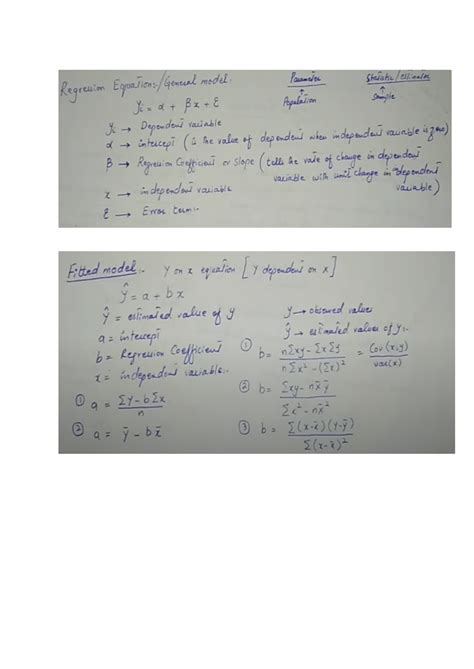 Regression Equation:/General model:
Parameter
Statistic/estimator
↑
Population
↑
Sample
yi = α + βx + ε
yi → Dependent variable
α → intercept (is the value of dependent when independent variable is zero)
β → Regression Coefficient or slope (tells the rate of change in dependent
variable with unit change in independent
variable)
x → independent variable
ε → Error term:-
Fitted model:- Y on x equation [Y dependent on x]
ŷ = a + bx
ŷ = estimated value of y
a = intercept
b = Regression Coefficient
x = independent variable:-
① a = Σy - bΣx / n
② a = ȳ - bx̄
y → observed values
ŷ → estimated values of y:-
① b = nΣxy - ΣxΣy / nΣx² - (Σx)² = Cov(x,y) / var(x)
② b = Σxy - nx̄ȳ / Σx² - nx̄²
③ b = Σ(x-x̄)(y-ȳ) / Σ(x-x̄)²